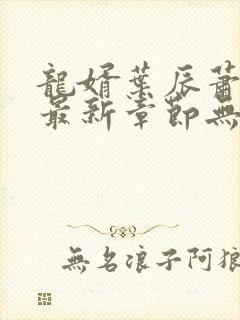 龍婿葉辰蕭
最新章節無
無名浪子阿狼